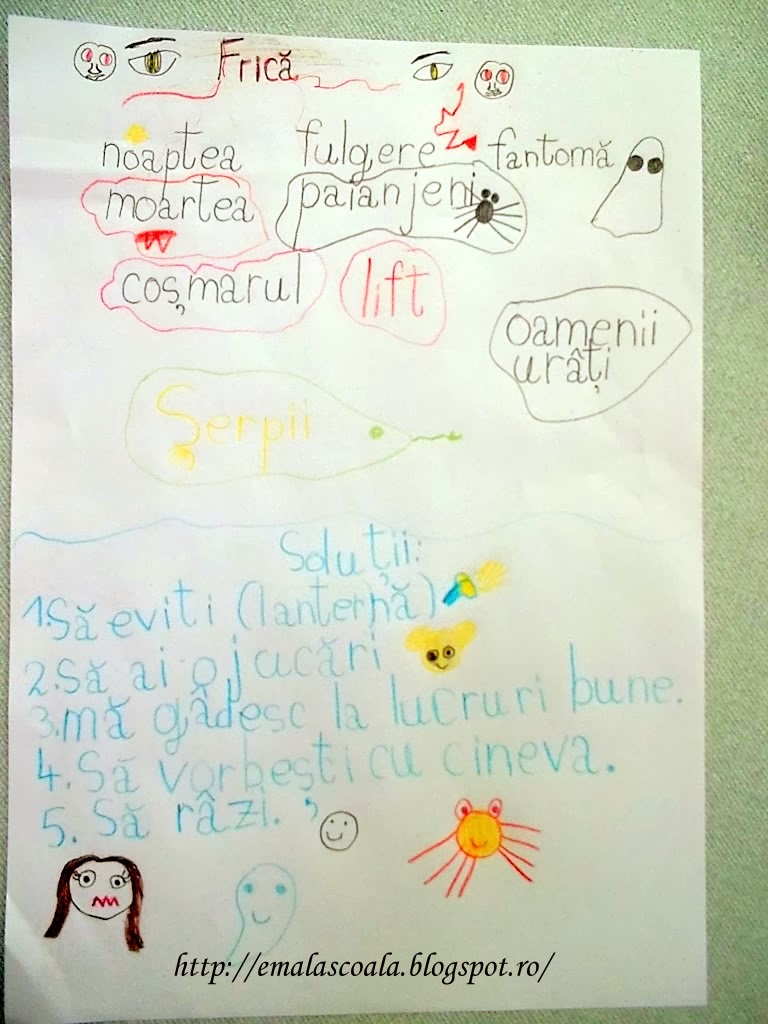 Frică
noaptea fulgere fantomă
moartea paianjeni
coșmarul lift
oamenii
urâți
Șerpii
Soluții:
1.Să eviti (lanternă)
2.Să ai o jucări
3.mă gâdesc la lucruri bune.
4. Să vorbești cu cineva.
5. Să râzi.
http://emalascoala.blogspot.ro/